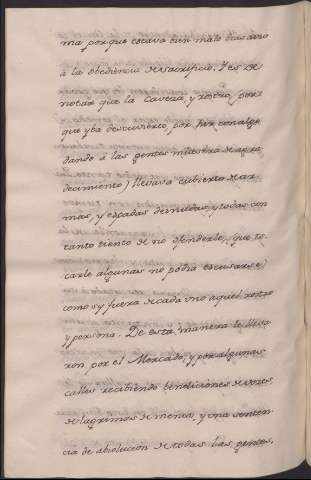 ma porque estava bien malo deas dero
à la obediência de sacrificio. Y es de
notar que la caveza, y rostro, (por
que yba descuvierto, por hir con algo
dando à las gentes muestra de agra
decimiento) llevava cubierto de ar
mas, y espadas desnudas, y todas con
tanto tiento de no ofenderle, (que to-
carle algunas no podia escusarse)
como sy fuera de cada uno aquel rostro
y persona. De esta manera le lleva
ron por el Mercado, y por algunas
calles recibiendo bendiciones de vozes,
de lagrimas de menos, y una senten
cia de absolucion de todas las gentes,